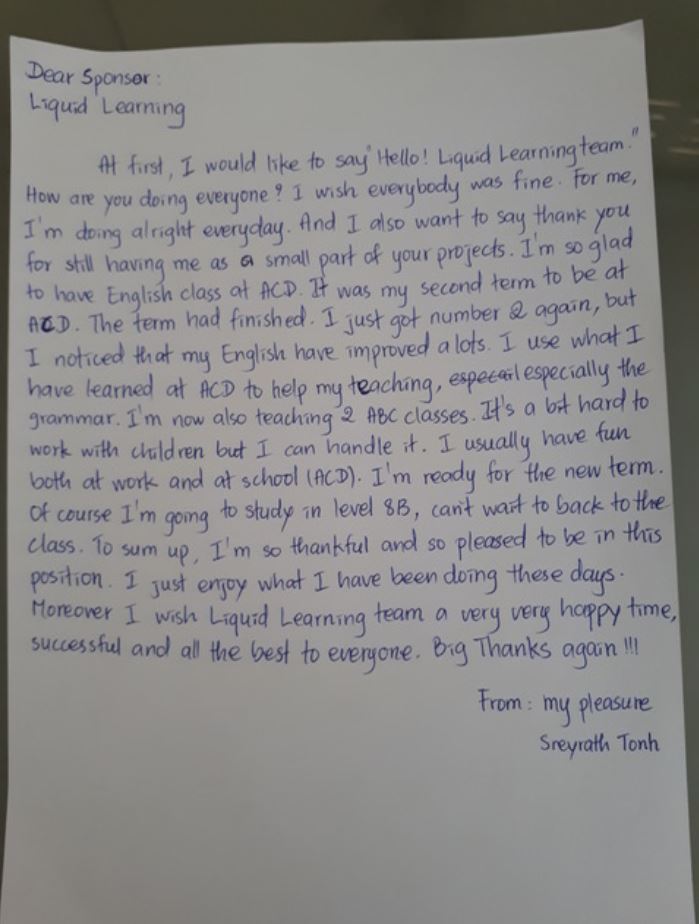 Dear Sponsor:
Liquid Learning
At first, I would like to say "Hello! Liquid Learning team."
How are you doing everyone? I wish everybody was fine. For me,
I'm doing alright everyday. And I also want to say thank you
for still having me as a small part of your projects. I'm so glad
to have English class at ACD. It was my second term to be at
ACD. The term had finished. I just got number 2 again, but
I noticed that my English have improved a lots. I use what I
have learned at ACD to help my teaching, especially the
grammar. I'm now also teaching 2 ABC classes. It's a bit hard to
work with children but I can handle it. I usually have fun
both at work and at school (ACD). I'm ready for the new term.
Of course I'm going to study in level 8B, can't wait to back to the
class. To sum up, I'm so thankful and so pleased to be in this
position. I just enjoy what I have been doing these days.
Moreover I wish Liquid Learning team a very very happy time,
successful and all the best to everyone. Big Thanks again!!!
From: my pleasure
Sreyrath Tonh